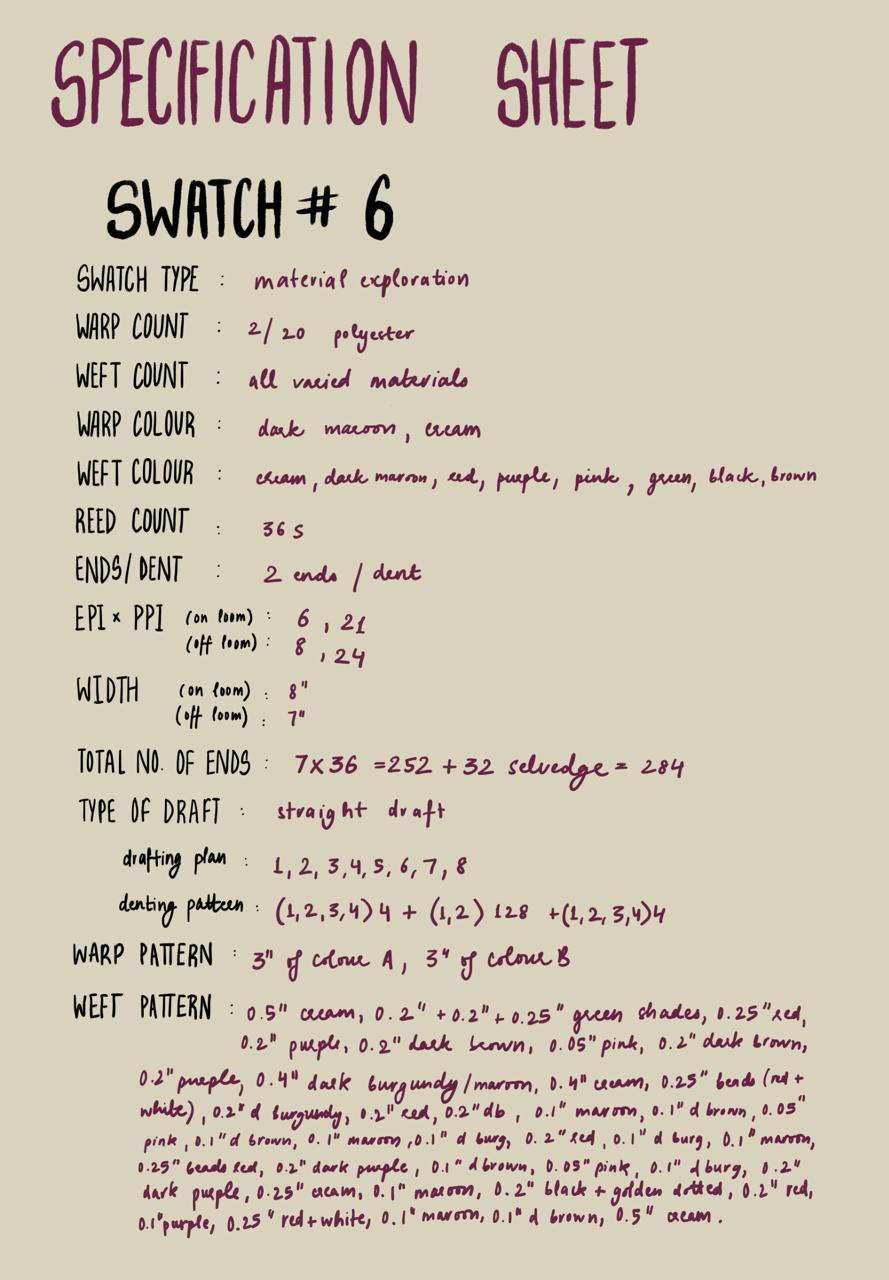 SPECIFICATION SHEET
SWATCH # 6
SWATCH TYPE : material exploration
WARP COUNT : 2/20 polyester
WEFT COUNT : all varied materials
WARP COLOUR : dark maroon, cream
WEFT COLOUR : cream, dark maroon, red, purple, pink, green, black, brown
REED COUNT : 36 s
ENDS/DENT : 2 ends / dent
EPI × PPI (on loom) : 6 , 21
(off loom) : 8 , 24
WIDTH (on loom) : 8"
(off loom) : 7"
TOTAL NO. OF ENDS : 7x36 =252 + 32 selvedge = 284
TYPE OF DRAFT : straight draft
drafting plan : 1, 2, 3,4, 5, 6, 7, 8
denting pattern : (1,2,3,4) 4 + (1,2) 128 +(1,2,3,4)4
WARP PATTERN : 3" of colour A, 3" of colour B
WEFT PATTERN : 0.5" cream, 0.2" +0.2"+ 0.25" green shades, 0.25" red,
0.2" purple, 0.2" dark brown, 0.05" pink, 0.2" dark brown,
0.2" purple, 0.4" dark burgundy/maroon, 0.4" cream, 0.25" beads (red +
white), 0.2" d burgundy, 0.2" red, 0.2" db , 0.1" maroon, 0.1" d brown, 0.05"
pink, 0.1" d brown, 0.1" maroon, 0.1" d burg, 0.2" red, 0.1" d burg, 0.1" maroon,
0.25" beads red, 0.2" dark purple, 0.1" d brown, 0.05" pink, 0.1" d burg, 0.2"
dark purple, 0.25" cream, 0.1" maroon, 0.2" black + golden dotted, 0.2" red,
0.1" purple, 0.25" red+white, 0.1" maroon, 0.1" d brown, 0.5" cream.